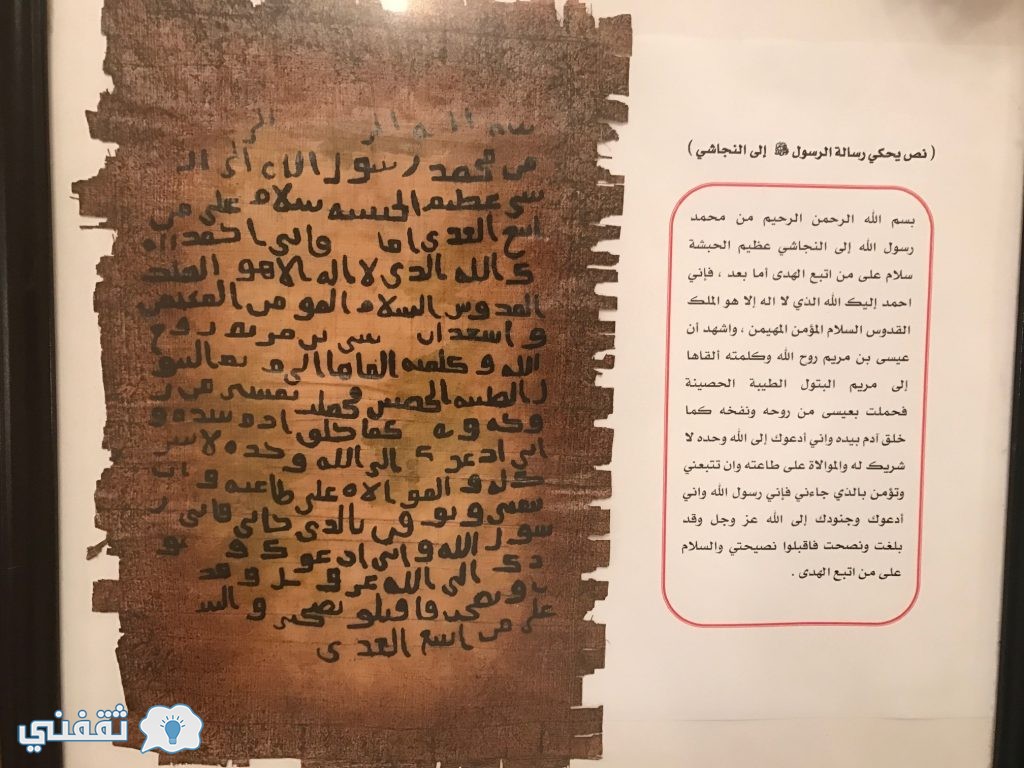 ( نص يحكي رسالة الرسول ﷺ إلى النجاشي )
بسم الله الرحمن الرحيم من محمد
رسول الله إلى النجاشي عظيم الحبشة
سلام على من اتبع الهدى أما بعد ، فإني
احمد إليك الله الذي لا اله إلا هو الملك
القدوس السلام المؤمن المهيمن ، واشهد أن
عيسى بن مريم روح الله وكلمته ألقاها
إلى مريم البتول الطيبة الحصينة
فحملت بعيسى من روحه ونفخه كما
خلق آدم بيده واني أدعوك إلى الله وحده لا
شريك له والموالاة على طاعته وان تتبعني
وتؤمن بالذي جاءني فإني رسول الله واني
أدعوك وجنودك إلى الله عز وجل وقد
بلغت ونصحت فاقبلوا نصيحتي والسلام
على من اتبع الهدى .
من محمد رسول الله الى
سى عظيم الحبسه سلام على من
اتبع الهدى اما فانى احمد
ك الله الذى لا اله الا هو الملك
القدوس السلام المو من المهيمن
و اسهد ان سى بن مريم روح
الله و كلمته القاها الى البتو
ل الطيبه الحصينه فحملت من ر
وحه و كما خلق ادم بيده و
انى ادعو ك الى الله و حده لا سر
ك له و الموالاه على طاعته و ان
تتبعنى و تو من بالذى جانى فانى ر
سول الله و انى ادعو ك و
دك الى الله عز و جل و قد
و نصحت فاقبلو نصيحتى و السلا
على من اتبع الهدى
ثقفني